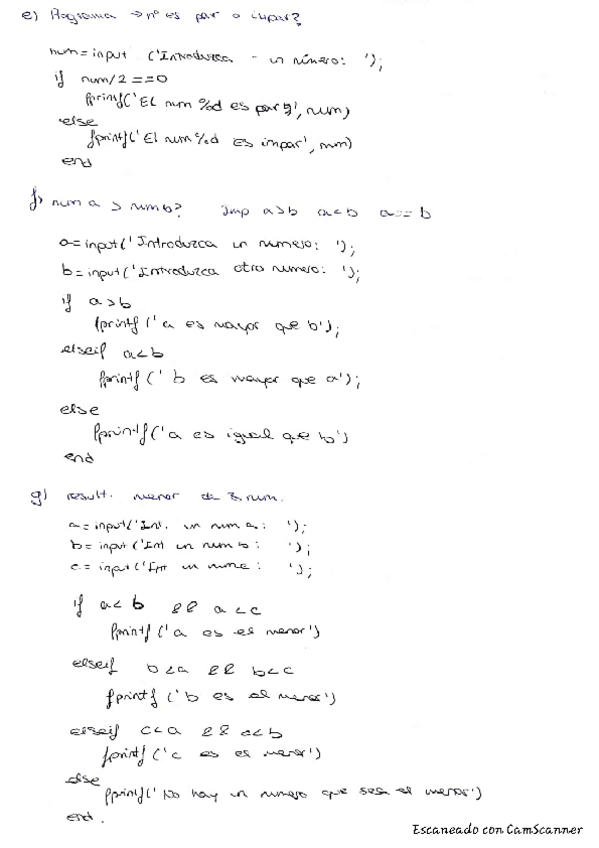 e) Programa → nº es par o impar?
num=input ('Introduzca un número: ');
if num/2 ==0
fprintf('El num %d es par', num)
else
fprintf('El num %d es impar', num)
end
f) num a > num b? Imp a>b a<b a==b
a=input('Introduzca un numero: ');
b=input('Introduzca otro numero: ');
if a>b
fprintf('a es mayor que b');
elseif a<b
fprintf('b es mayor que a');
else
fprintf('a es igual que b')
end
g) result. menor de 3 num.
a=input('Int. un num a: ');
b=input('Int un num b: ');
c=input('Int un num c: ');
if a<b && a<c
fprintf('a es el menor')
elseif b<a && b<c
fprintf('b es el menor')
elseif c<a && c<b
fprintf('c es el menor')
else
fprintf('No hay un numero que sea el menor')
end.
Escaneado con CamScanner